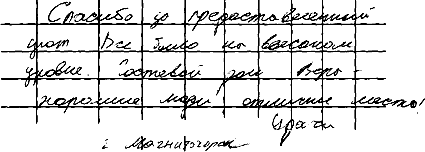 Спасибо за предоставленный
уют Все было на высоком
уровне. Гостевой дом Веры -
хорошие люди отличное место!
Врачи
г. Магнитогорск